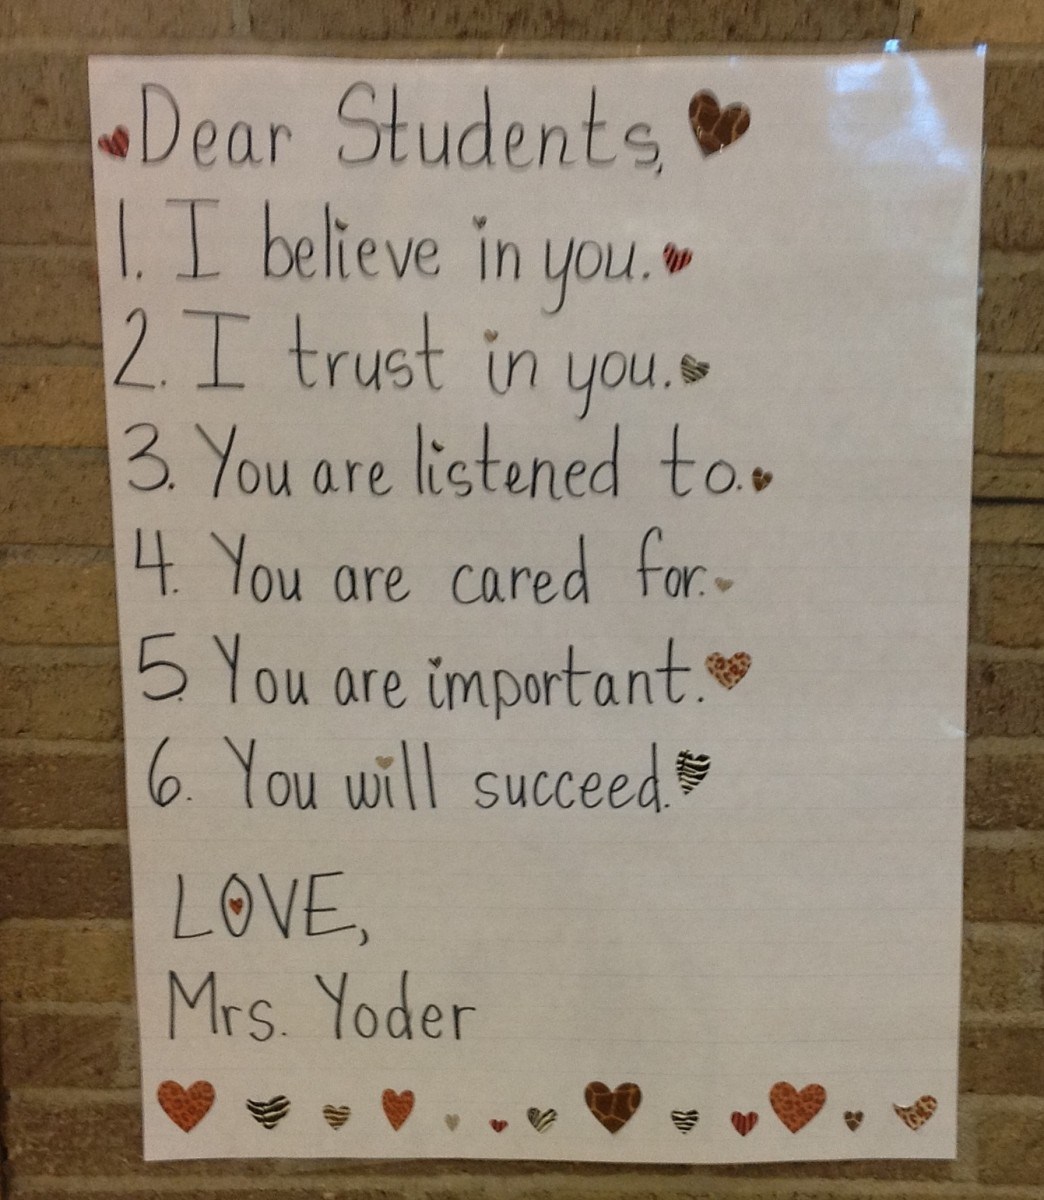 Dear Students,
1. I believe in you.
2. I trust in you.
3. You are listened to.
4. You are cared for.
5. You are important.
6. You will succeed.
LOVE,
Mrs. Yoder